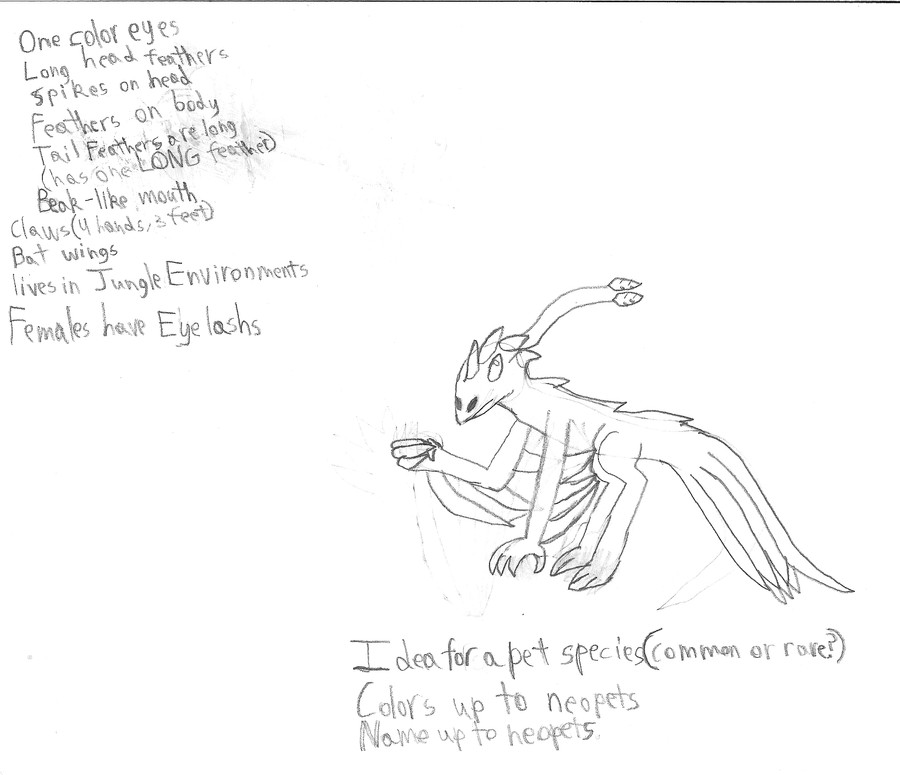 One color eyes
Long head feathers
Spikes on head
Feathers on body
Tail Feathers are long
(has one LONG feather)
Beak-like mouth
Claws(4 hands, 3 feet)
Bat wings
lives in Jungle Environments
Females have Eyelashs
Idea for a pet species(common or rare?)
Colors up to neopets
Name up to neopets.